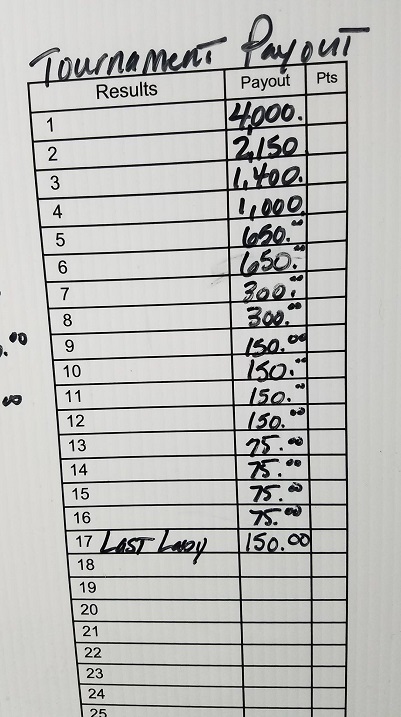 Tournament Payout
Results Payout Pts
1 4,000.
2 2,150
3 1,400.
4 1,000
5 650.00
6 650.00
7 300.00
8 300.00
.00 9 150.00
10 150.00
00 11 150.00
12 150.00
13 75.00
14 75.00
15 75.00
16 75.00
17 Last Lady 150.00
18
19
20
21
22
23
24
25